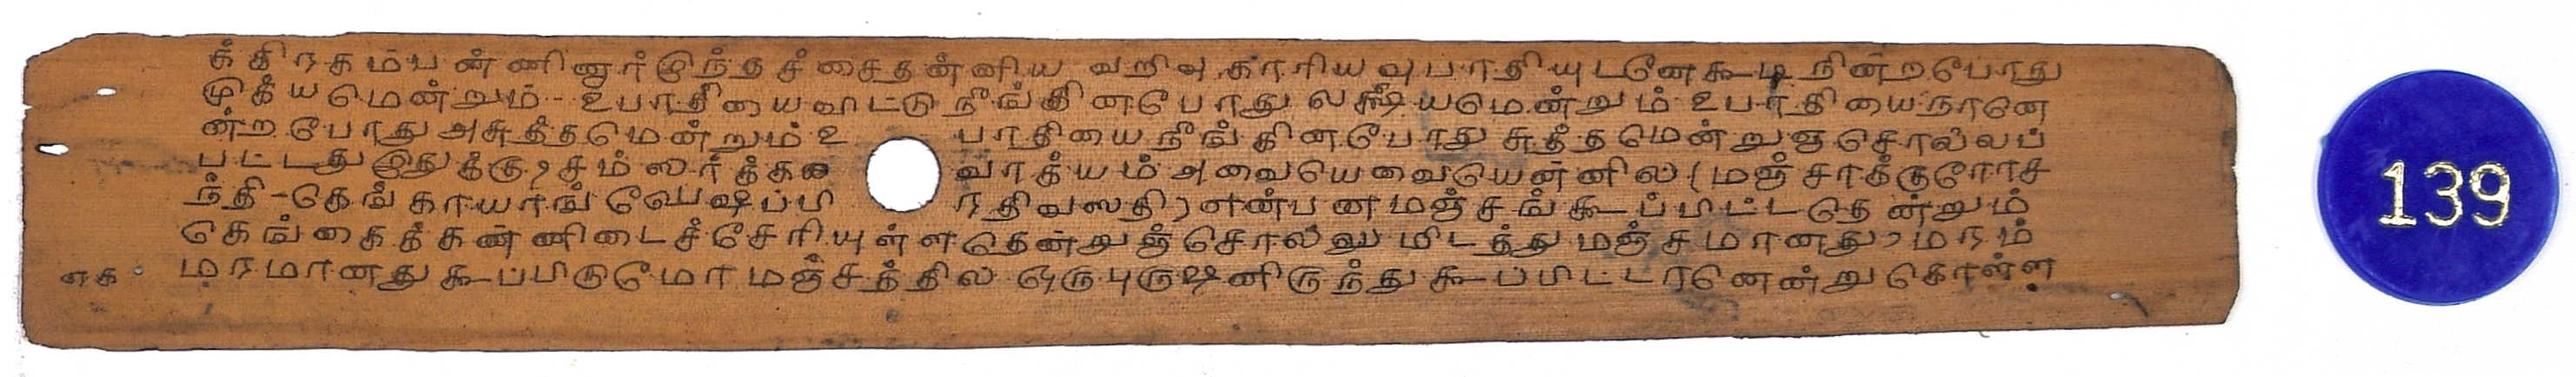 க்திரகம்பண்ணினார்இந்தச்சைதன்னிய வறிவு காரியவுபாதியுடனேகூடி நின்றபோது
முக்கியமென்றும்- உபாதியைவிட்டு நீங்கினபோது லக்ஷியமென்றும் உபாதியைநானே
ன்றபோது அசுத்தமென்றும் உபாதியை நீங்கினபோது சுத்தமென்றுஞ் சொல்லப்
பட்டதுஇதுக்கு,
வாக்யம் அவையெவையென்னில் (மஞ்சாக்குரோச
ந்தி-கெங்காயாங் கோஷப்பிரதிவஸதி) என்பன மஞ்சங் கூப்பிட்டதென்றும்
கெங்கைக்கண்ணிடைச்சேரியுள்ளதென்றுஞ்சொல்லு மிடத்து மஞ்சமானது மரம்
எக மரமானது கூப்பிடுமோ மஞ்சத்தில் ஒரு புருஷனிருந்து கூப்பிட்டானென்று கொள்ள
139